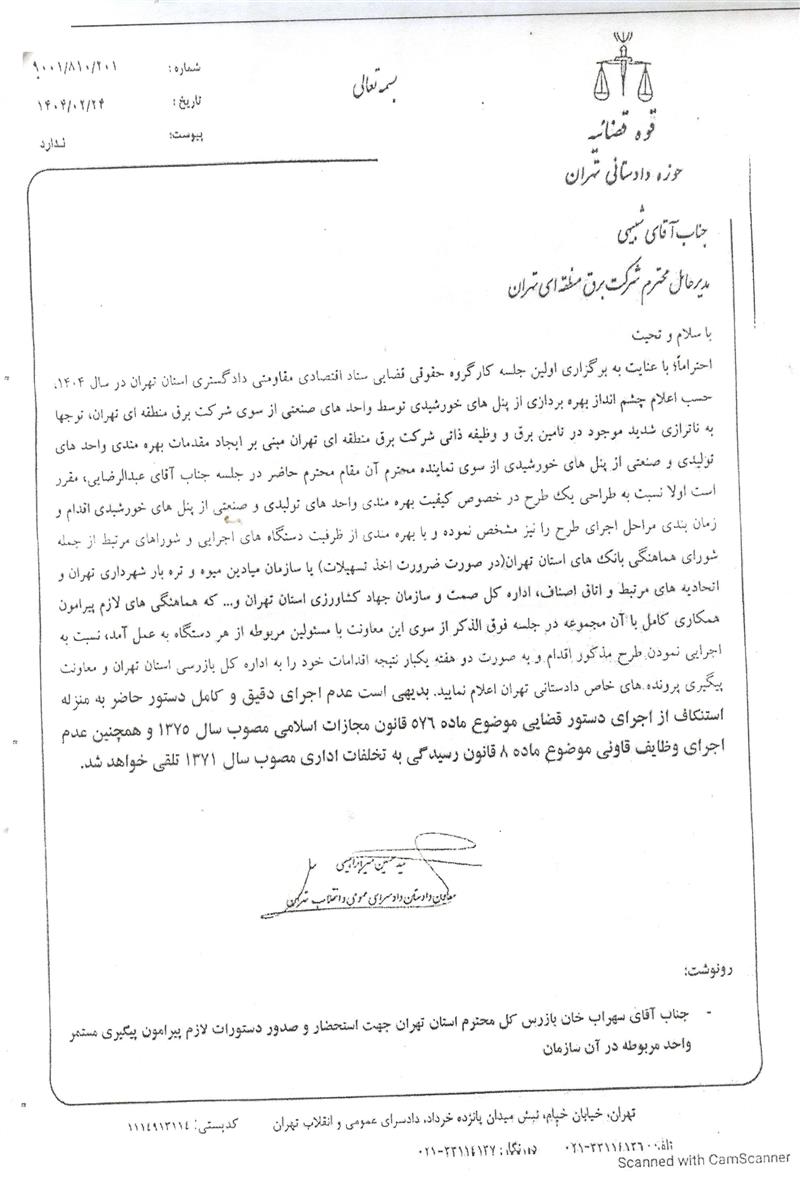 بسمه تعالی
شماره : ۹۰۰۱/۸۱۰/۲۰۱
تاریخ : ۱۴۰۴/۰۲/۲۴
پیوست: ندارد
قوه قضائیه
حوزه دادستانی تهران
جناب آقای شبیهی
مدیرعامل محترم شرکت برق منطقه ای تهران
با سلام و تحیت
احتراماً؛ با عنایت به برگزاری اولین جلسه کارگروه حقوقی قضایی ستاد اقتصادی مقاومتی دادگستری استان تهران در سال ۱۴۰۴،
حسب اعلام چشم انداز بهره برداری از پنل های خورشیدی توسط واحد های صنعتی از سوی شرکت برق منطقه ای تهران، توجها
به ناترازی شدید موجود در تامین برق و وظیفه ذاتی شرکت برق منطقه ای تهران مبنی بر ایجاد مقدمات بهره مندی واحد های
تولیدی و صنعتی از پنل های خورشیدی از سوی نماینده محترم آن مقام محترم حاضر در جلسه جناب آقای عبدالرضایی، مقرر
است اولا نسبت به طراحی یک طرح در خصوص کیفیت بهره مندی واحد های تولیدی و صنعتی از پنل های خورشیدی اقدام و
زمان بندی مراحل اجرای طرح را نیز مشخص نموده و با بهره مندی از ظرفیت دستگاه های اجرایی و شوراهای مرتبط از جمله
شورای هماهنگی بانک های استان تهران(در صورت ضرورت اخذ تسهیلات) یا سازمان میادین میوه و تره بار شهرداری تهران و
اتحادیه های مرتبط و اتاق اصناف، اداره کل صمت و سازمان جهاد کشاورزی استان تهران و... که هماهنگی های لازم پیرامون
همکاری کامل با آن مجموعه در جلسه فوق الذکر از سوی این معاونت با مسئولین مربوطه از هر دستگاه به عمل آمد، نسبت به
اجرایی نمودن طرح مذکور اقدام و به صورت دو هفته یکبار نتیجه اقدامات خود را به اداره کل بازرسی استان تهران و معاونت
پیگیری پرونده های خاص دادستانی تهران اعلام نمایید. بدیهی است عدم اجرای دقیق و کامل دستور حاضر به منزله
استنکاف از اجرای دستور قضایی موضوع ماده ۵۷۶ قانون مجازات اسلامی مصوب سال ۱۳۷۵ و همچنین عدم
اجرای وظایف قاونی موضوع ماده ۸ قانون رسیدگی به تخلفات اداری مصوب سال ۱۳۷۱ تلقی خواهد شد.
سید حسین میرابراهیمی
معاون دادستان دادسرای عمومی و انقلاب تهران
رونوشت:
- جناب آقای سهراب خان بازرس کل محترم استان تهران جهت استحضار و صدور دستورات لازم پیرامون پیگیری مستمر
واحد مربوطه در آن سازمان
تهران، خیابان خیام، نبش میدان پانزده خرداد، دادسرای عمومی و انقلاب تهران کدپستی: ۱۱۱۴۹۱۳۱۱۴
تلفن: ۰۲۱-۳۳۱۱۶۱۳۶ دورنگار: ۰۲۱-۳۳۱۱۶۱۳۷
Scanned with CamScanner